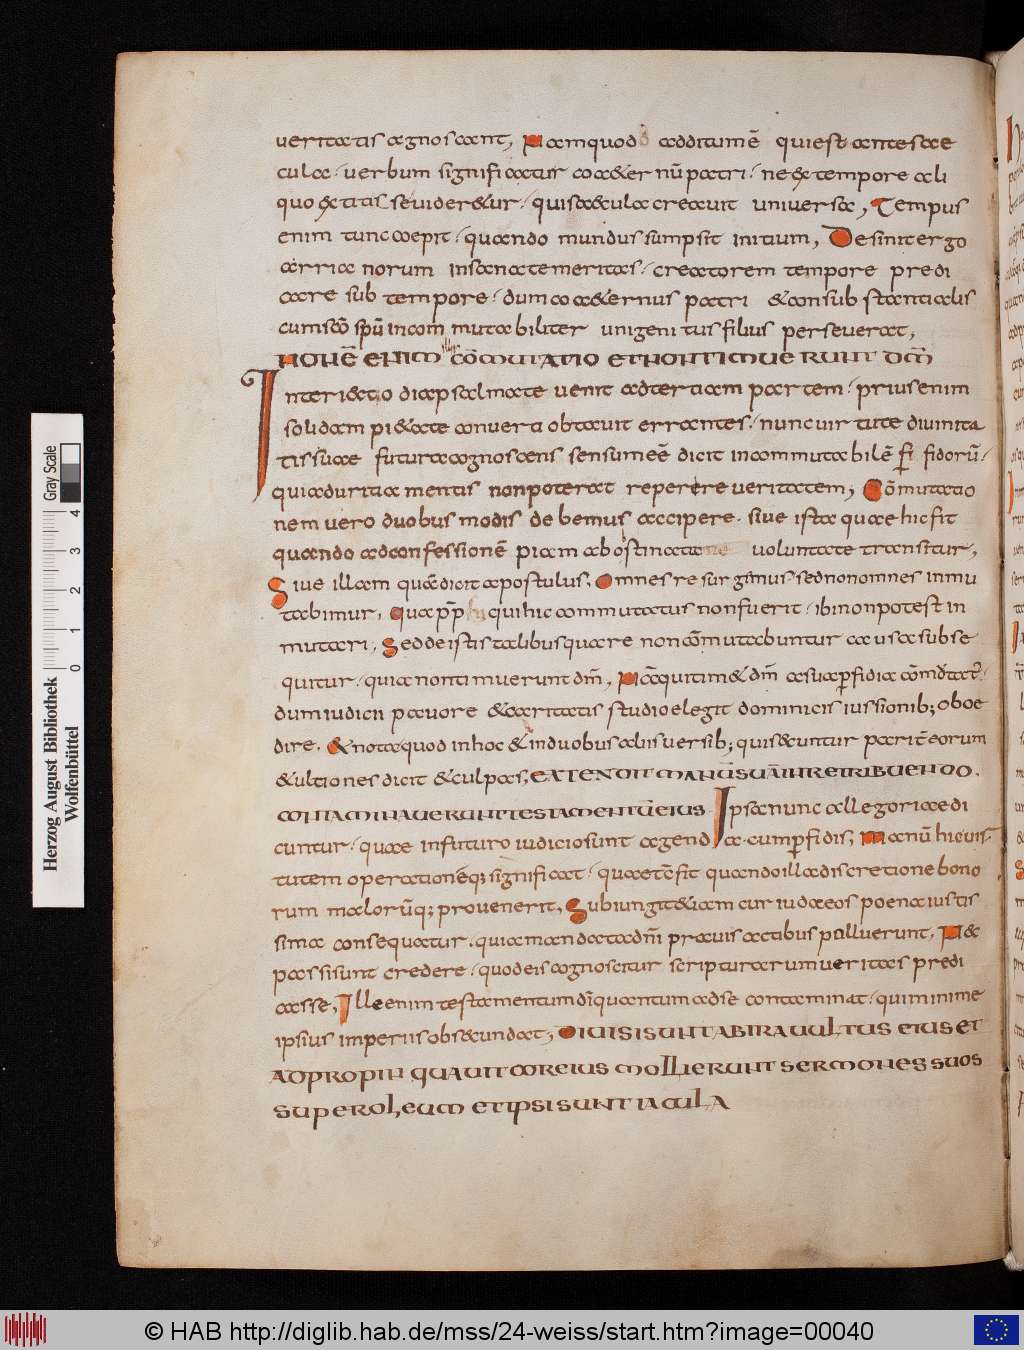 ueritatis agnoscant, Nam quod additum ē qui est ante sae
cula · uerbum significatur coaeternū patri · neque tempore ali
quo extitisse uideretur · quis saecula creauit uniuersa, Tempus
enim tunc coepit · quando mundus sumpsit initium, Desinit ergo
arrianorum insana temeritas · creatorem tempore predi
care sub tempore · dum coaeternus patri & consubstantialis
cum scō spū incommutabiliter unigenitus filius perseuerat,
NON Ē ENIM ILLIS CŌMUTATIO ET NON TIMUERUNT DM̄
Interiecto diapsalmate uenit ad tertiam partem · prius enim
solidam pietate conuerti obtauit errantes · nunc uirtute diuinita
tis suae futura cognoscens sensum eē dicit incommutabilē perfidorū ·
qui a duritia mentis non poterat reperere ueritatem, Cōmutatio
nem uero duobus modis debemus accipere · siue ista quae hic fit
quando ad confessionē piam ab obstinata uoluntate transitur,
Siue illam quā dicit apostulus, Omnes resurgimus sed non omnes inmu
tabimur, qui hic commutatus non fuerit · ibi non potest in
mutari · Sed de istis talibus quare non cōmutabuntur causa subse
quitur · quia non timuerunt dm̄, Nā qui timet dm̄ a sua perfidia
dum iudicii pauore & caritatis studio elegit dominicis iussionib; oboe
dire · & nota quod in hoc & in duobus aliis uersib; qui secuntur pariter eorum
& ultiones dicit & culpas, EXTENDIT MANŪ SUĀ IN RETRIBUENDO ·
CONTAMINAUERUNT TESTAMENTŪ EIUS Ipsa nunc allegoricae di
cuntur · quae in futuro iudicio sunt agenda · cum perfidis, Manū hic uir
tutem operationēq; significat · quae tc̄ fit quando illa discretione bono
rum malorūq; prouenerit, Subiungit & iam cur iudaeos poena iustis
sima consequatur · quia mandata dn̄i prauis actibus polluerunt, Nec
passi sunt credere · quod eis cognoscitur scripturarum ueritas predi
casse, Ille enim testamentum dī quantum ad se contaminat · qui minime
ipsius imperiis obsecundat, DIUISI SUNT AB IRA UULTUS EIUS ET
ADPROPINQUAUIT COR EIUS MOLLIERUNT SERMONES SUOS
SUPER OLEUM ET IPSI SUNT IACULA
Herzog August Bibliothek
Wolfenbüttel
Gray Scale
0 1 2 3 4
© HAB http://diglib.hab.de/mss/24-weiss/start.htm?image=00040